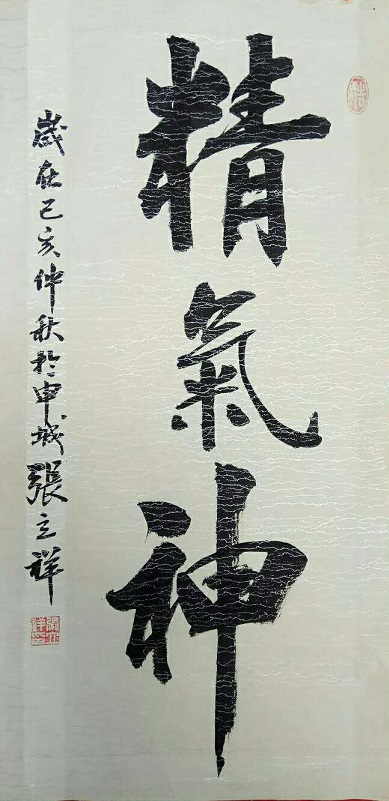 精氣神
歲在己亥仲秋於申城張立祥